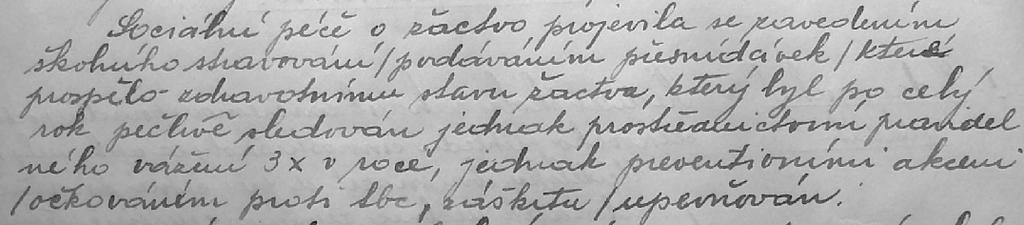 Sociální péče o žactvo projevila se zavedením
školního stravování /podáváním přesnídávek/ které
prospělo zdravotnímu stavu žactva, který byl po celý
rok pečlivě sledován jednak prostřednictvím pravidel
ného vážení 3 x v roce, jednak preventivními akcemi
/očkováním proti tbc, záškrtu/ upevňován.